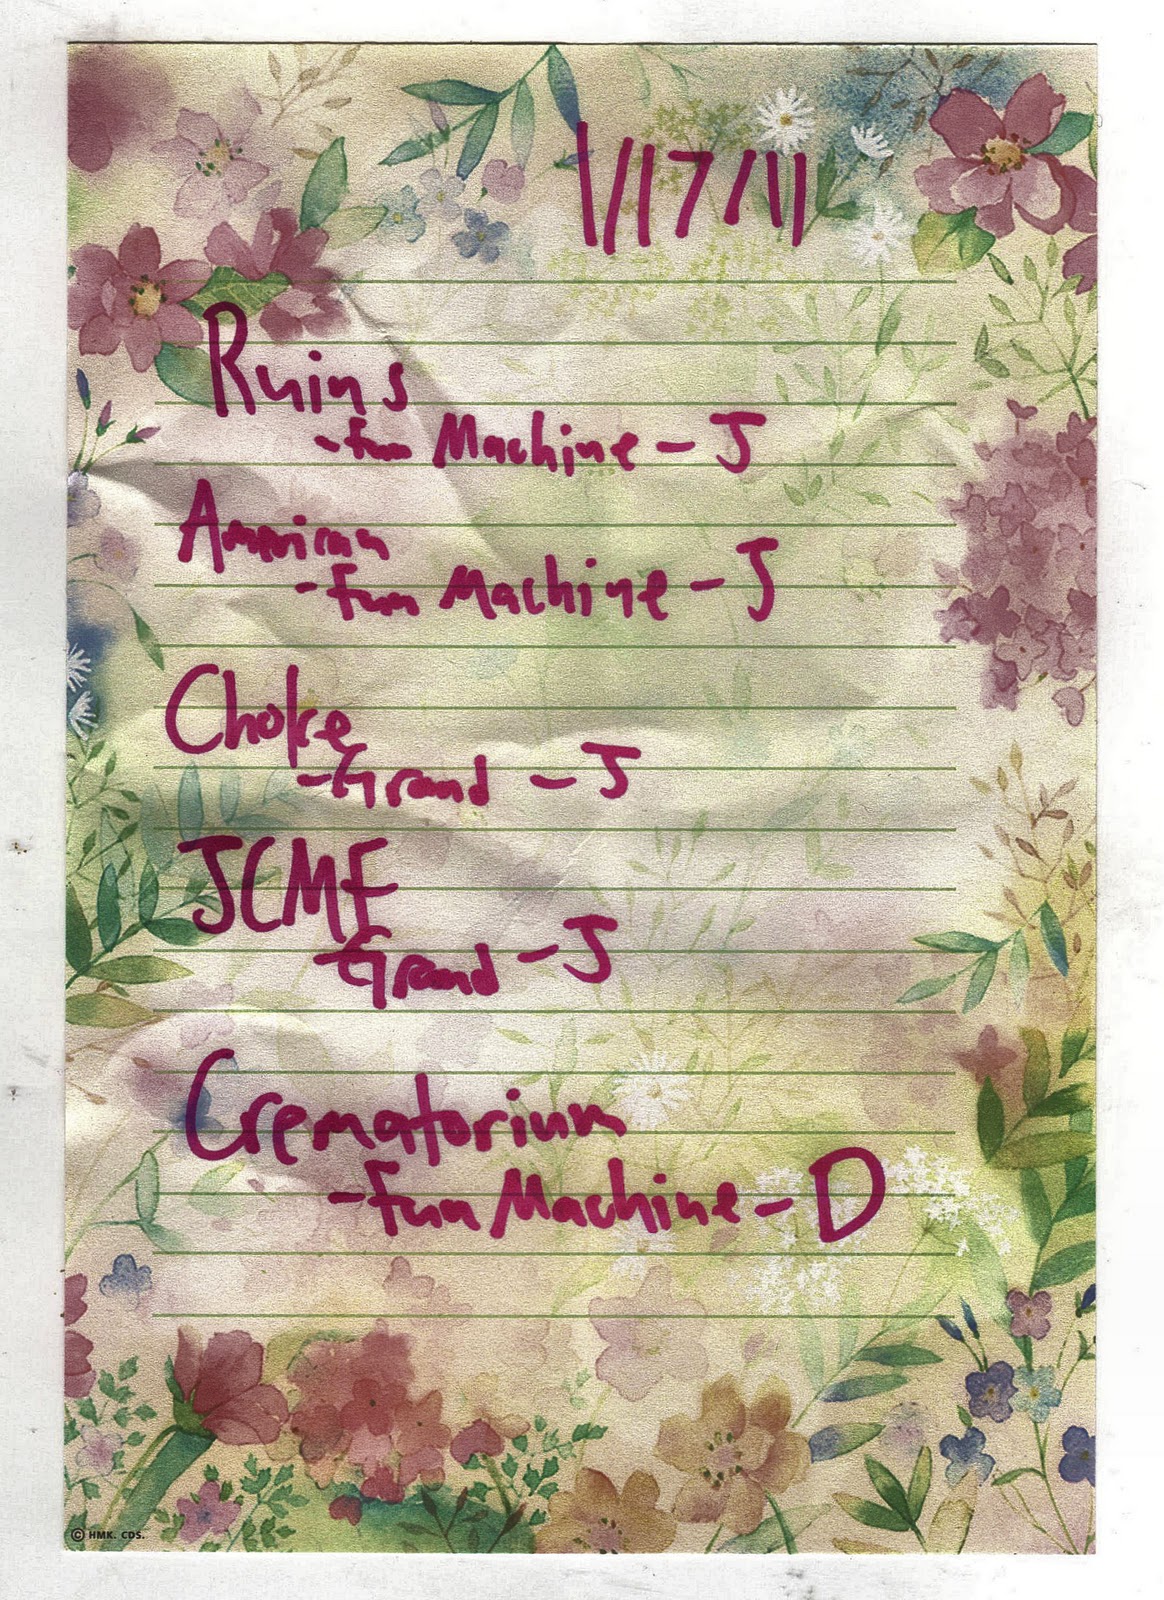 1/17/11
Ruins
-Fun Machine - J
American
-Fun Machine - J
Choke
-Grand - J
JCMF
-Grand - J
Crematorium
-Fun Machine - D
© HMK. CDS.